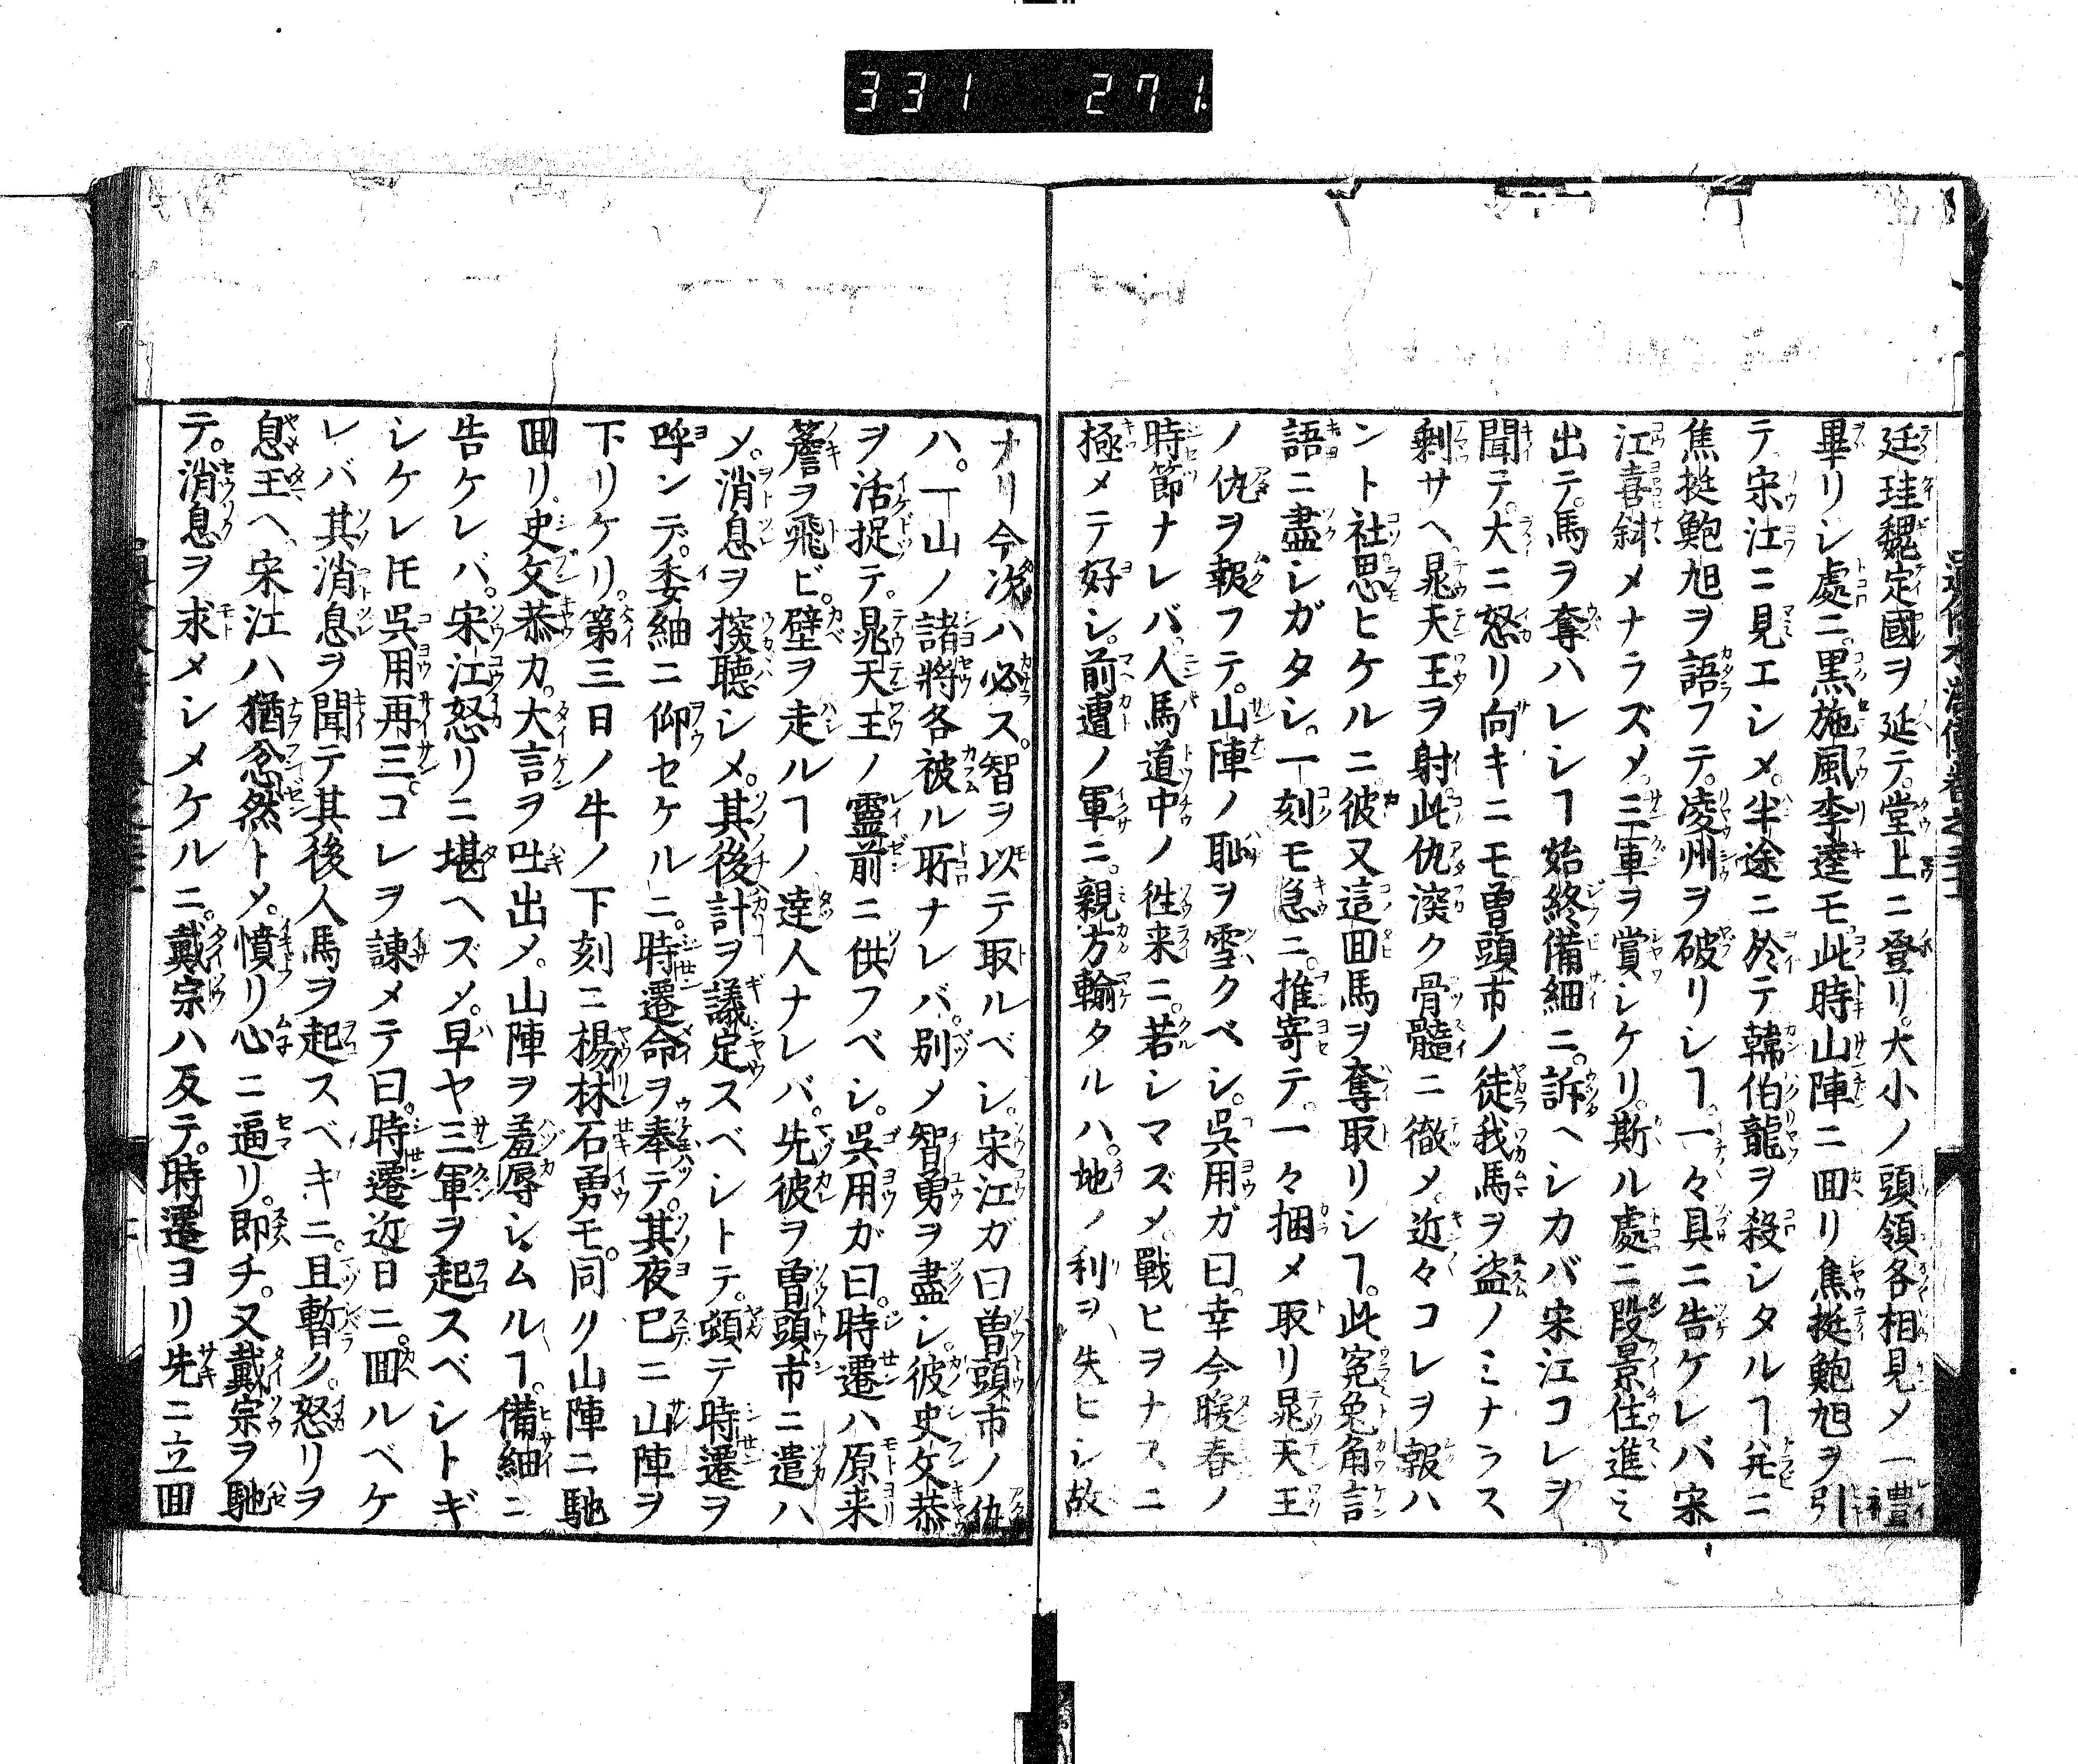 331 271
廷珪魏定國ヲ延テ。堂上ニ登リ。大小ノ頭領各相見メ一禮
畢リシ處ニ。黒旋風李逵モ。此時山陣ニ囬リ焦挺鮑旭ヲ引
テ宋江ニ見エシメ。半途ニ於テ韓伯龍ヲ殺シタルヿ幷ニ
焦挺鮑旭ヲ語フテ。凌州ヲ破リシヿ。一々具ニ告ケレバ宋
江喜斜メナラズメ。三軍ヲ賞シケリ。斯ル處ニ段景住進ミ
出テ。馬ヲ奪ハレシヿ始終備細ニ。訴ヘシカバ宋江コレヲ
聞テ。大ニ怒リ向キニモ曽頭市ノ徒我馬ヲ盗ノミナラス
剰サヘ。晁天王ヲ射此仇深ク骨髓ニ徹メ近々コレヲ報ハ
ント社思ヒケルニ彼又這囬馬ヲ奪取リシヿ。此寃兔角言
語ニ盡シガタシ。一刻モ急ニ。推寄テ。一々捆メ取リ晁天王
ノ仇ヲ報フテ。山陣ノ恥ヲ雪クベシ。呉用ガ曰。幸今暖春ノ
時節ナレバ。人馬道中ノ徃来ニ。若シマズメ。戰ヒヲナスニ
極メテ好シ。前遭ノ軍ニ。親方輸タルハ。地ノ利ヲ失ヒシ故
ナリ今次ハ必ス。智ヲ以テ取ルベシ。宋江ガ曰曽頭市ノ仇
ハ。一山ノ諸將各被ル所ナレバ。別メ智勇ヲ盡シ。彼史文恭
ヲ活捉テ。晁天王ノ靈前ニ供フベシ。呉用ガ曰。時遷ハ原来
簷ヲ飛ビ。壁ヲ走ルヿノ達人ナレバ。先彼ヲ曽頭市ニ遣ハ
メ。消息ヲ探聴シメ。其後計ヲ議定スベシトテ。頓テ時遷ヲ
呼ンデ。委細ニ仰セケルニ。時遷命ヲ奉テ。其夜已ニ山陣ヲ
下リケリ。第三日ノ午ノ下刻ニ楊林石勇モ。同ク山陣ニ馳
囬リ。史文恭カ。大言ヲ吐出メ。山陣ヲ羞辱シムルヿ。備細ニ
告ケレバ。宋江怒リニ堪ヘズメ。早ヤ三軍ヲ起スベシトギ
シケレ𪜈呉用再三。コレヲ諫メテ曰。時遷近日ニ。囬ルベケ
レバ其消息ヲ聞テ其後人馬ヲ起スベキニ。且暫ク。怒リヲ
息玉ヘ。宋江ハ猶忿然トメ。憤リ心ニ逼リ。即チ。又戴宗ヲ馳
テ。消息ヲ求メシメケルニ。戴宗ハ反テ。時遷ヨリ先ニ立囬